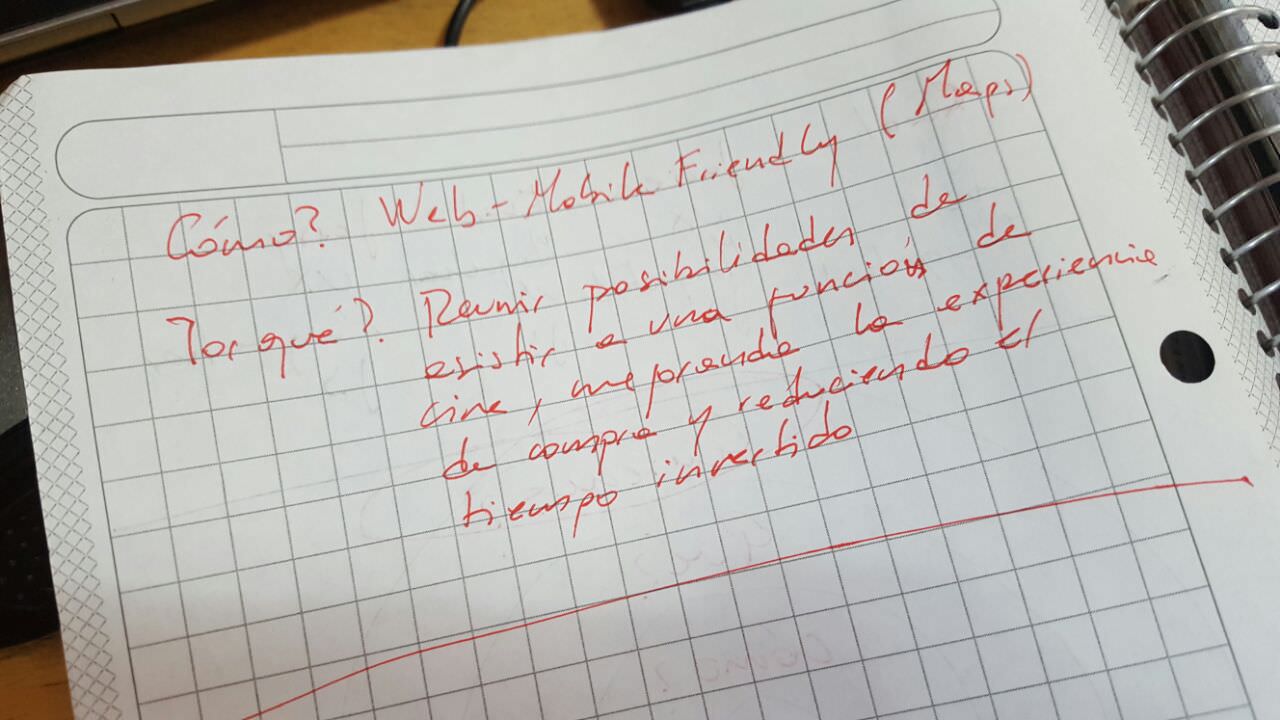 Cómo? Web - Mobile Friendly (Maps)
Por qué? Reunir posibilidades de
asistir a una función de
cine, mejorando la experiencia
de compra y reduciendo el
tiempo invertido